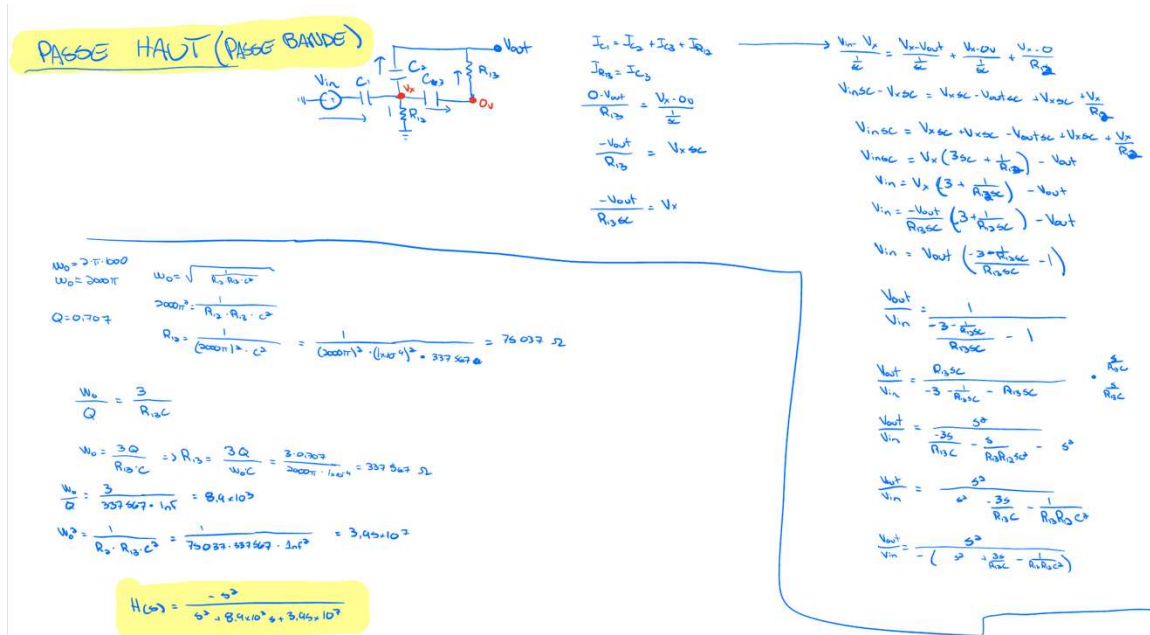 PASSE HAUT (PASSE BANDE)
Vout
Vin C1 C2 Vx C3 R13
R12 0v
I_C1 = I_C2 + I_C3 + I_R12
I_R13 = I_C3
(0-Vout)/R13 = (Vx-0v)/(1/sc)
-Vout/R13 = Vx sc
-Vout/(R13sc) = Vx
(Vin-Vx)/(1/sc) = (Vx-Vout)/(1/sc) + (Vx-0v)/(1/sc) + (Vx-0)/R12
Vinsc - Vxsc = Vxsc - Voutsc + Vxsc + Vx/R12
Vinsc = Vxsc + Vxsc - Voutsc + Vxsc + Vx/R12
Vinsc = Vx (3sc + 1/R12) - Vout
Vin = Vx (3 + 1/(R12sc)) - Vout
Vin = -Vout/(R13sc) (3 + 1/(R12sc)) - Vout
Vin = Vout ((-3 - 1/(R12sc))/(R13sc) - 1)
Vout/Vin = 1/((-3 - 1/(R12sc))/(R13sc) - 1)
Vout/Vin = R13sc/(-3 - 1/(R12sc) - R13sc) · (s/(R13c))/(s/(R13c))
Vout/Vin = s²/(-3s/(R13c) - s/(R13R12sc²) - s²)
Vout/Vin = s²/(s² -3s/(R13c) - 1/(R13R12c²))
Vout/Vin = s²/-(s² + 3s/(R13c) - 1/(R13R12c²))
w0 = 2·π·1000
w0 = 2000π
Q = 0,707
w0 = √(1/(R12·R13·c²))
2000π² = 1/(R12·R13·c²)
R12 = 1/((2000π)²·c²) = 1/((2000π)²·(1x10⁻⁹)²·337567) = 75037 Ω
w0/Q = 3/(R13C)
w0 = 3Q/(R13·C) => R13 = 3Q/(w0C) = 3·0,707/(2000π·1x10⁻⁹) = 337567 Ω
w0/Q = 3/(337567·1nF) = 8,9x10³
w0² = 1/(R12·R13·c²) = 1/(75037·337567·1nF²) = 3,95x10⁷
H(s) = -s²/(s² + 8.9x10³s + 3,95x10⁷)